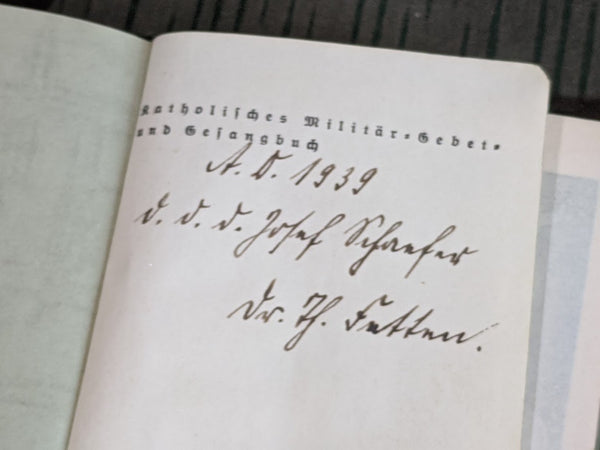 Katholisches Militär-Gebet-
und Gesangbuch
A. D. 1939
d. d. d. Josef Schaefer
Dr. Th. Fetten.